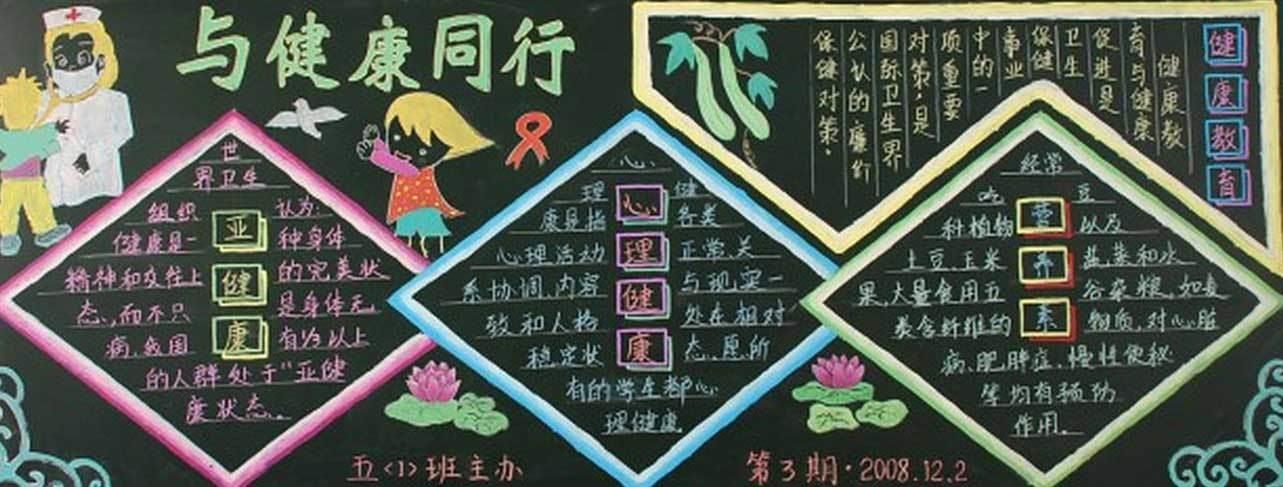 与健康同行
亚健康
世
界卫生
组织 认为:
健康是一 种身体
精神和交往上 的完美状
态,而不只 是身体无
病,我国 有⅓以上
的人群处于“亚健
康状态。
心理健康
心
理 健
康是指 各类
心理活动 正常、关
系协调、内容 与现实一
致和人格 处在相对
稳定状 态,愿所
有的学生都心
理健康
健康教育
健康教
育与健康
促进是
卫生
保健
事业
中的一
项重要
对策,是
国际卫生界
公认的廉价
保健对策。
营养素
经常
吃 豆
种植物 以及
土豆、玉米 蔬菜和水
果,大量食用五 谷杂粮,如麦
类含纤维的 物质,对心脏
病、肥胖症、慢性便秘
等均有预防
作用。
五<1>班主办
第3期·2008.12.2